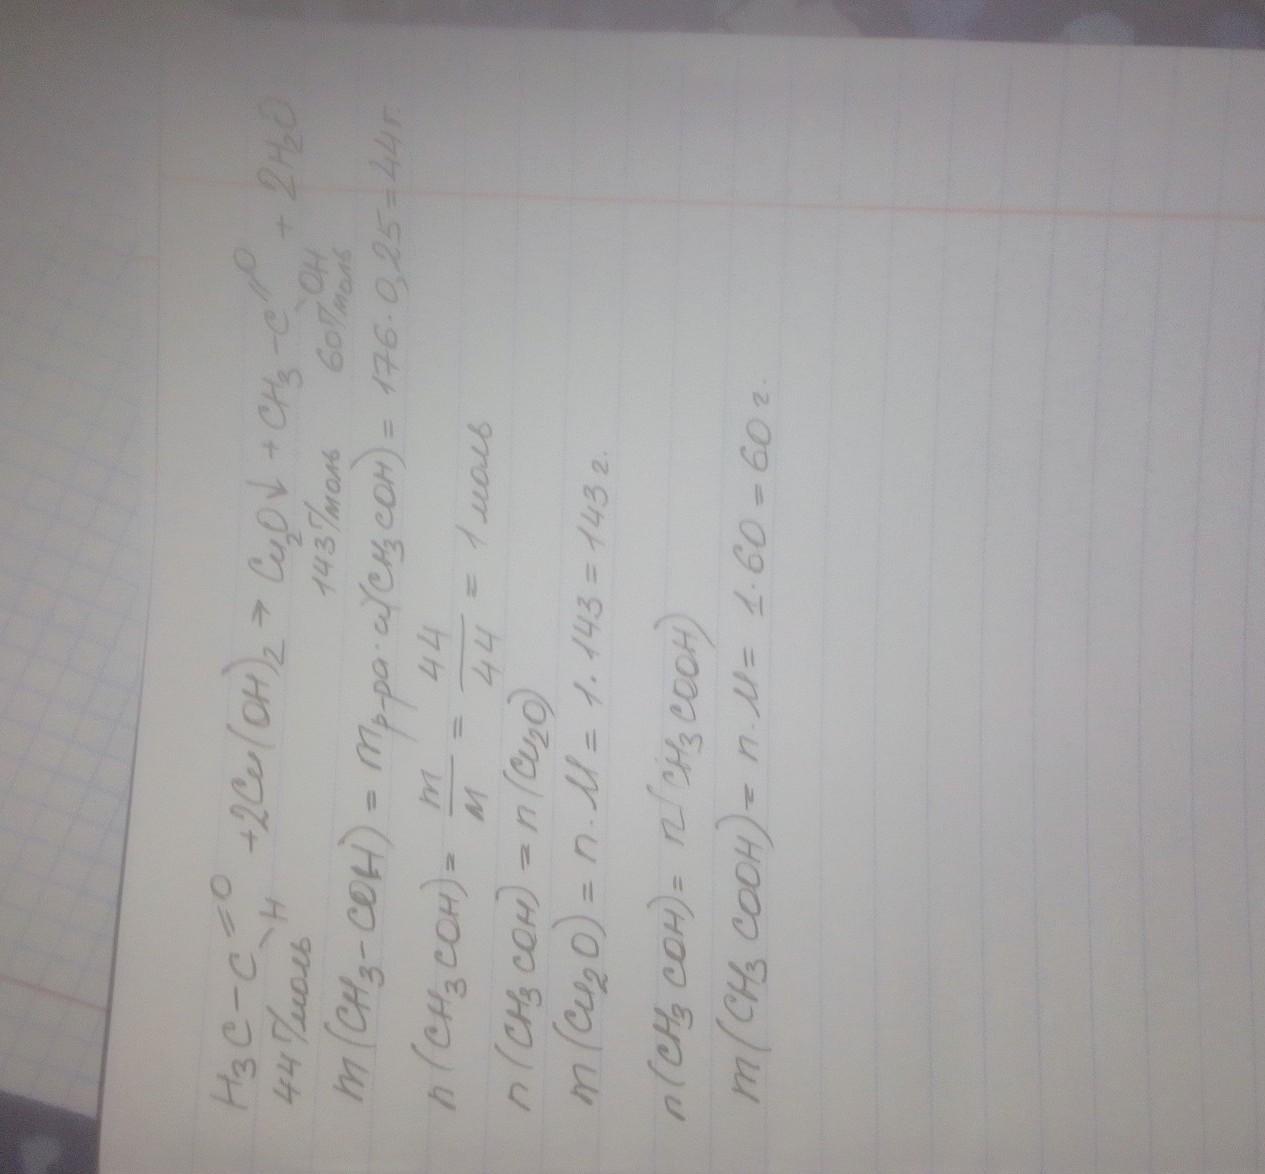 H₃C-C=O \H +2Cu(OH)₂ → Cu₂O↓ + CH₃-C//O \OH + 2H₂O
44 г/моль 143 г/моль 60 г/моль
m(CH₃-COH) = mр-ра·ω(CH₃COH) = 176·0,25=44 г.
n(CH₃COH)= m/M = 44/44 = 1 моль
n(CH₃COH) = n(Cu₂O)
m(Cu₂O) = n·M = 1·143=143 г.
n(CH₃COH)= n(CH₃COOH)
m(CH₃COOH)= n·M= 1·60=60 г.